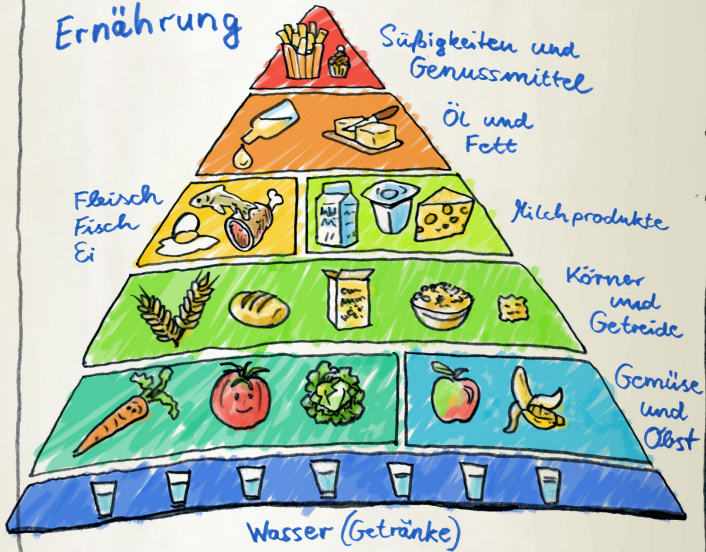 Ernährung
Süßigkeiten und
Genussmittel
Öl und
Fett
Fleisch
Fisch
Ei
Milchprodukte
Körner
und
Getreide
Gemüse
und
Obst
Wasser (Getränke)